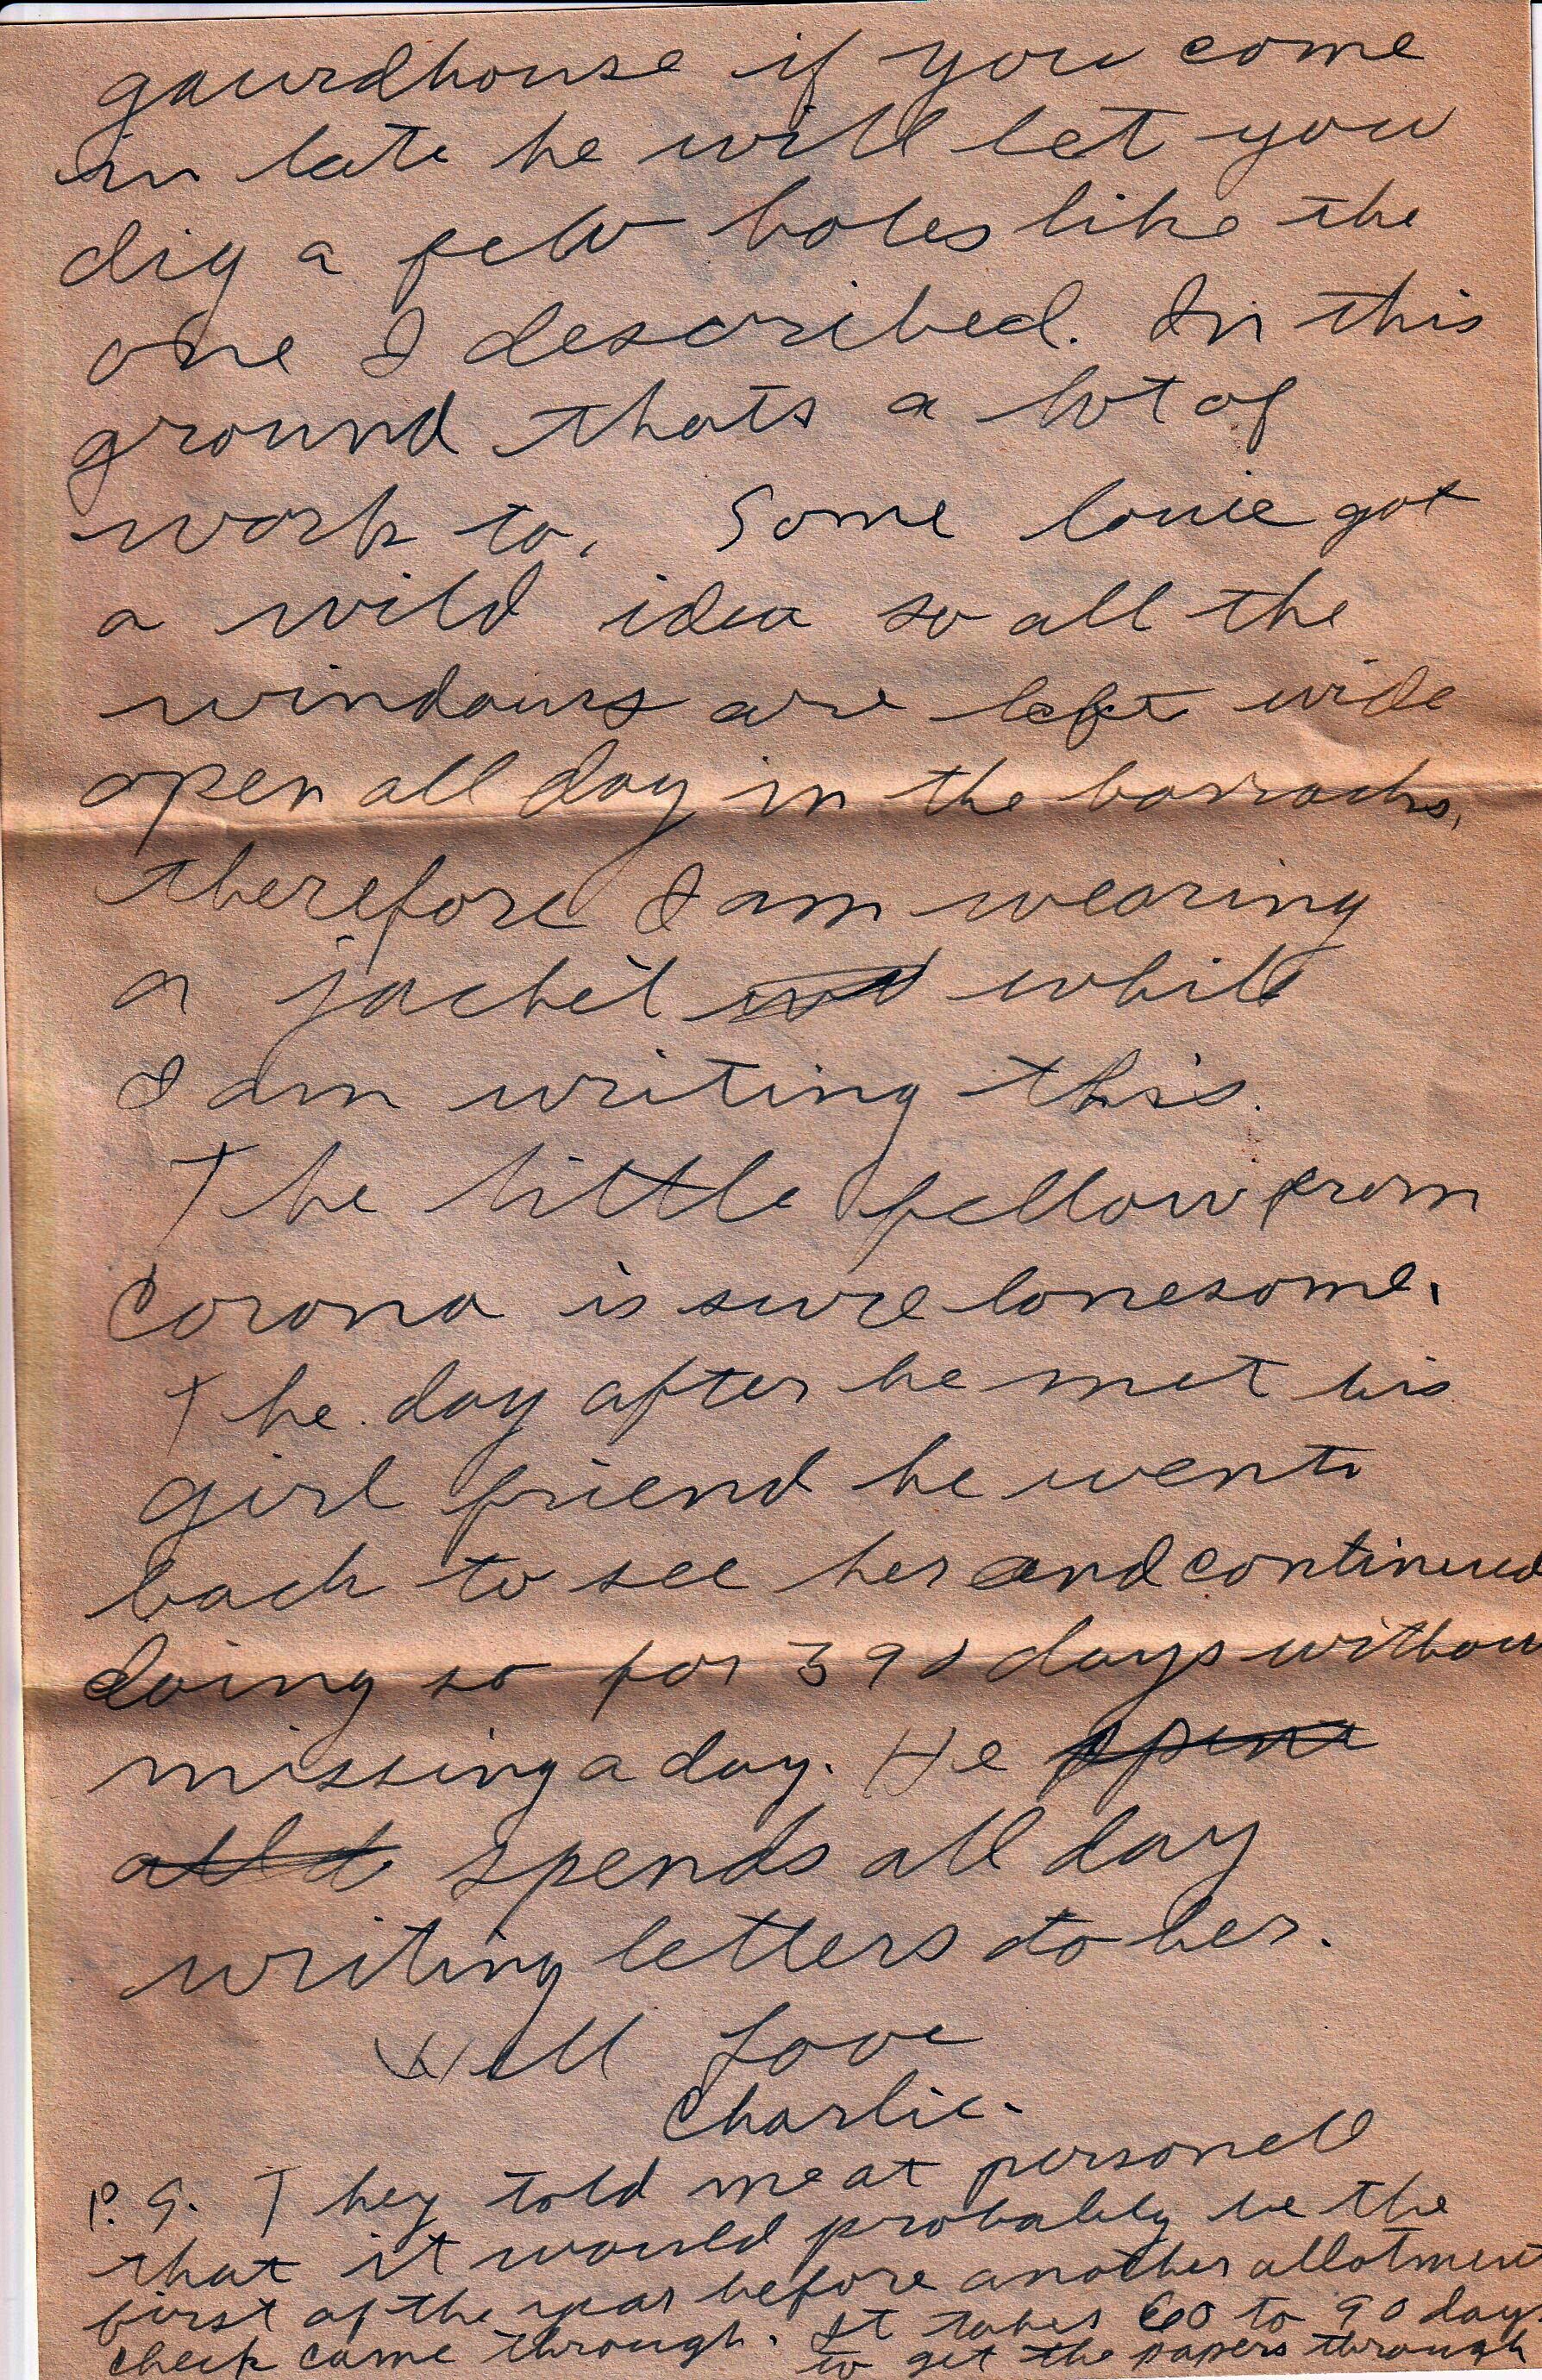 gaurdhouse if you come
in late he will let you
dig a few holes like the
one I described. In this
ground thats a lot of
work to. Some louie got
a wild idea so all the
windows are left wide
open all day in the barracks,
therefore I am wearing
a jacket while
I am writing this.
The little fellow from
Corona is sure lonesome.
The day after he met his
girl friend he went
back to see her and continued
doing so for days withou
missing a day. He
spends all day
writing letters to her.
Will Love
Charlie.
P.S. They told me at personell
that it would probably be the
first of the year before another allotment
check came through. It takes 60 to 90 days
to get the papers through